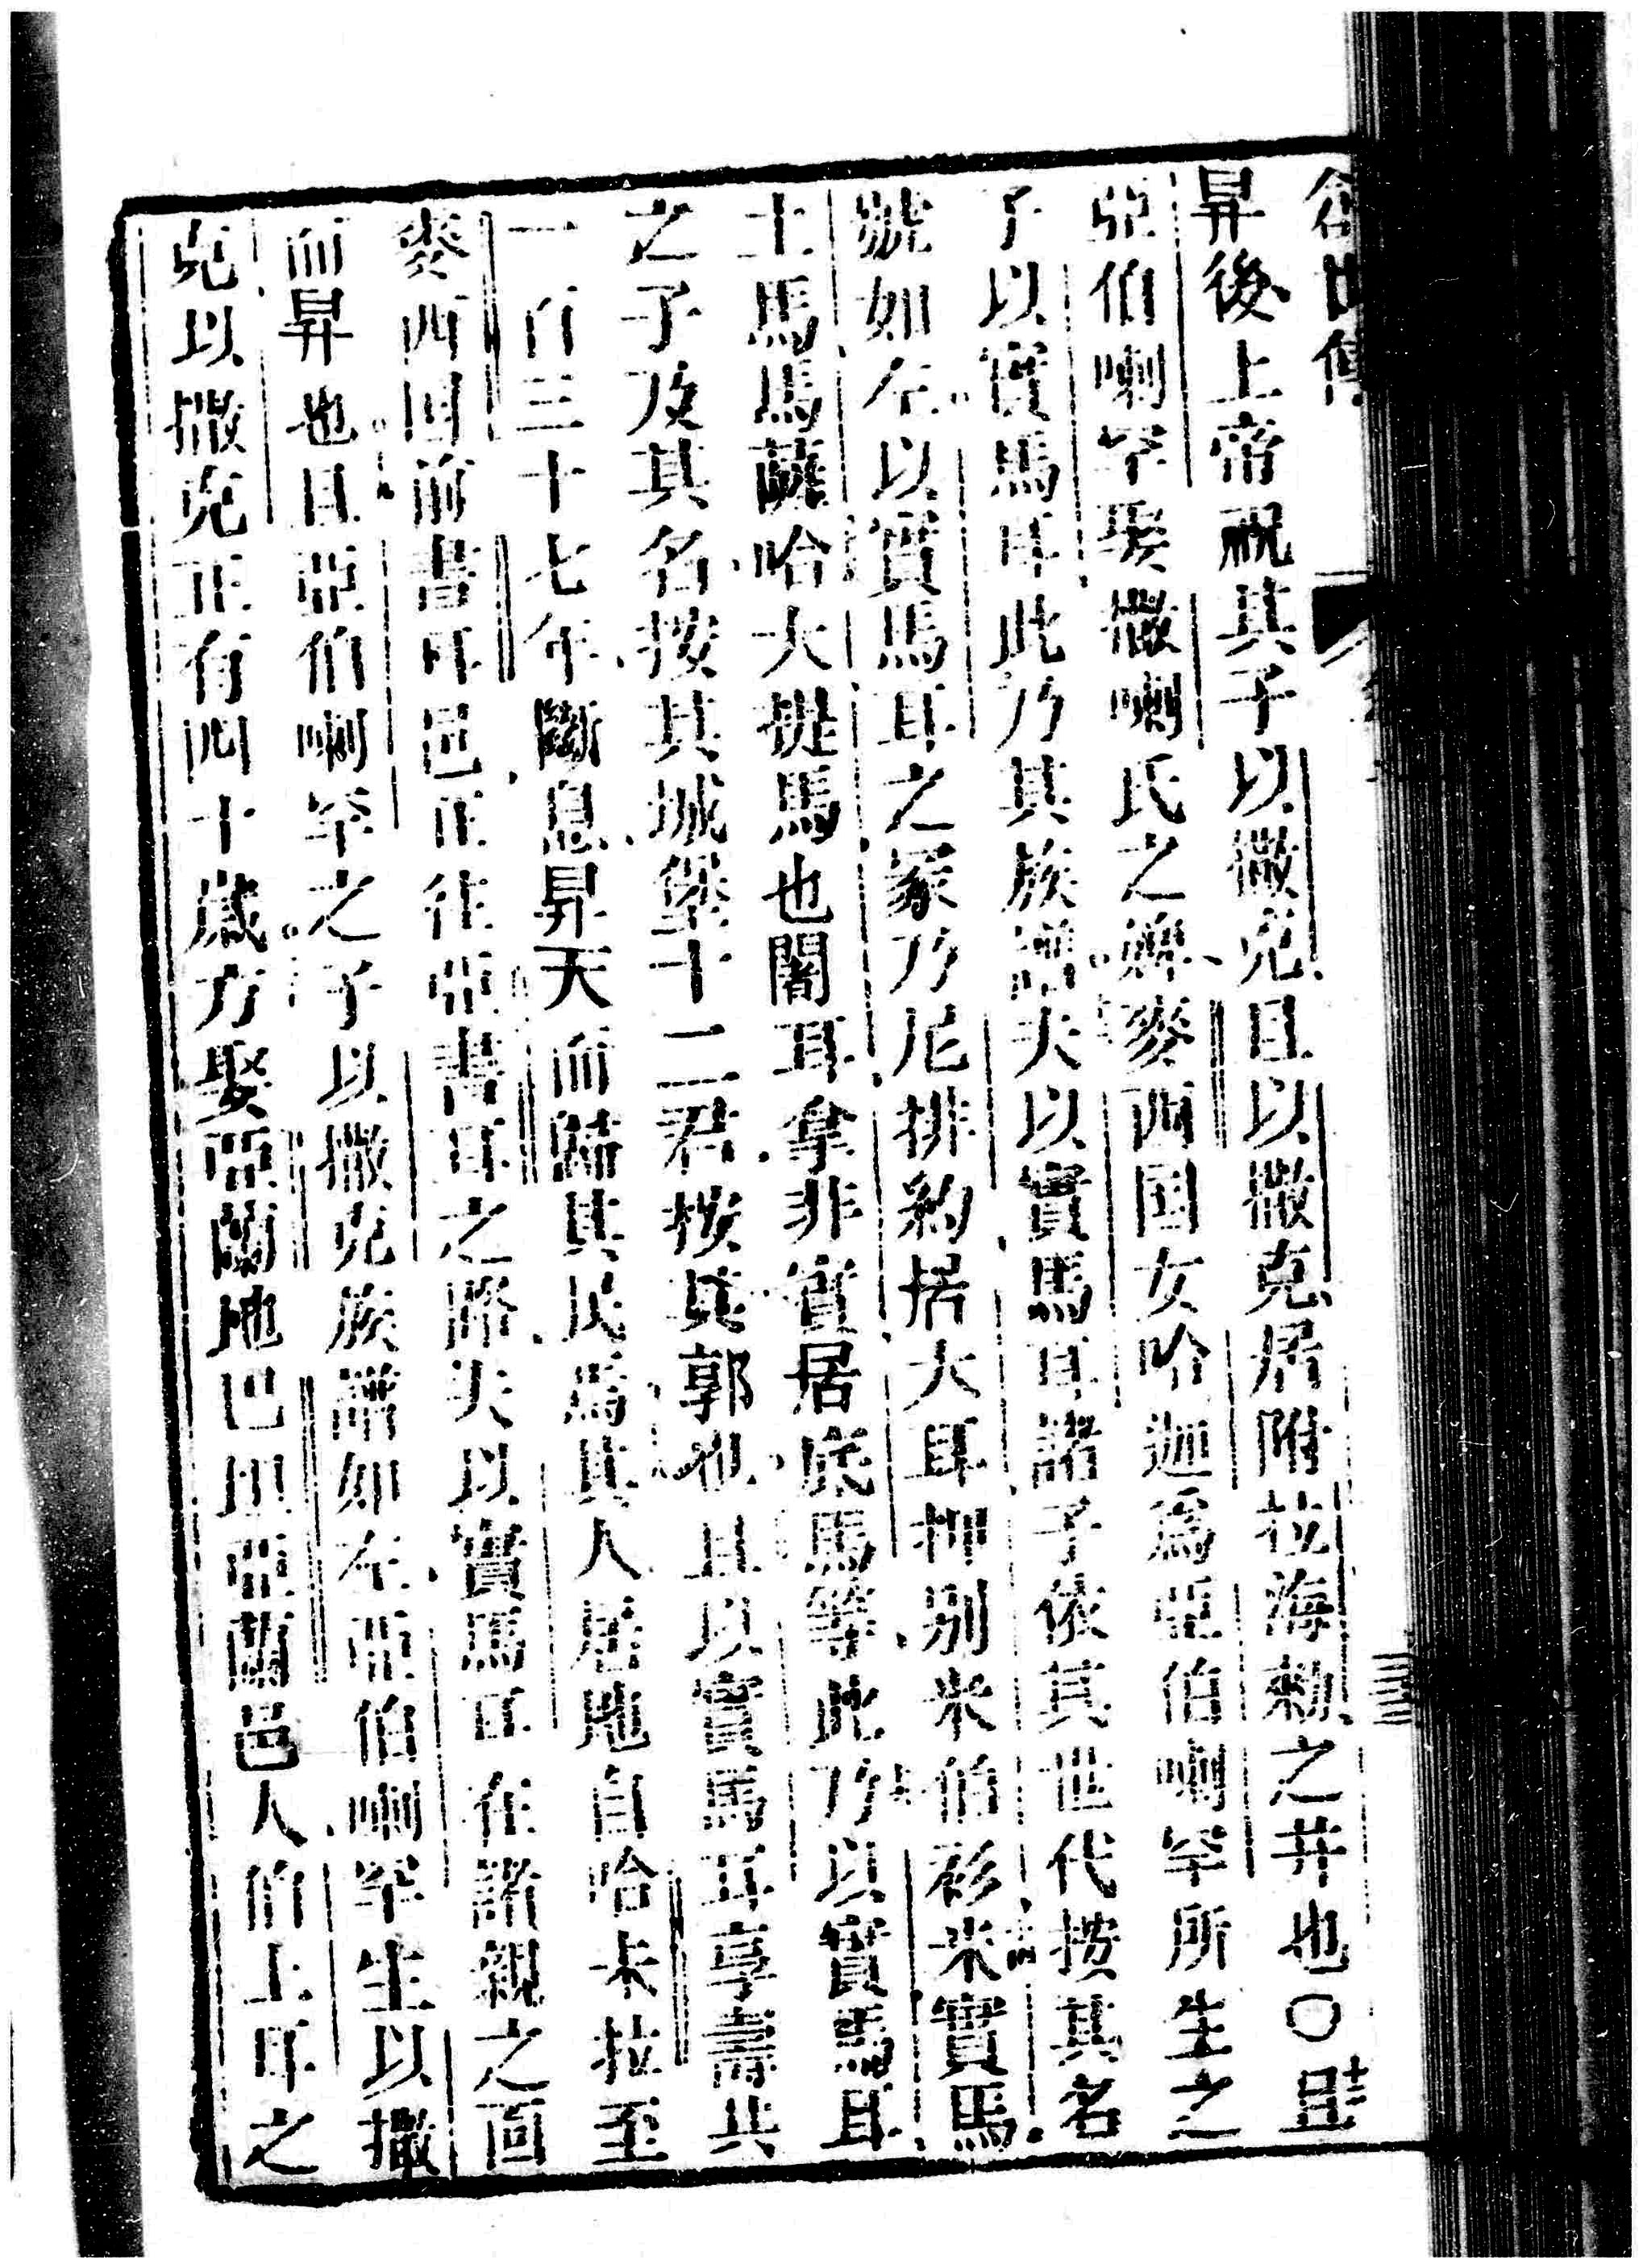 創世傳
昇後上帝祝其子以撒克且以撒克居附拉海勒之井也〇且
亞伯喇罕娶撒喇氏之婢麥西囯女哈迦爲亞伯喇罕所生之
子以實馬耳此乃其族譜夫以實馬耳諸子依其世代按其名
號如左以實馬耳之冢乃尼排約居大耳押別米伯衫米實馬
土馬馬薩哈大提馬也闍耳拿非實居底馬等此乃以實馬耳
之子及其名按其城堡十二君按其郭也且以實馬耳享壽共
一百三十七年斷息昇天而歸其民焉其人居處自哈未拉至
麥西囯前書耳邑正往亞書耳之路夫以實馬耳在諸親之面
而昇也且亞伯喇罕之子以撒克族譜如左亞伯喇罕生以撒
克以撒克正有四十歲方娶亞蘭地巴旦亞蘭邑人伯土耳之